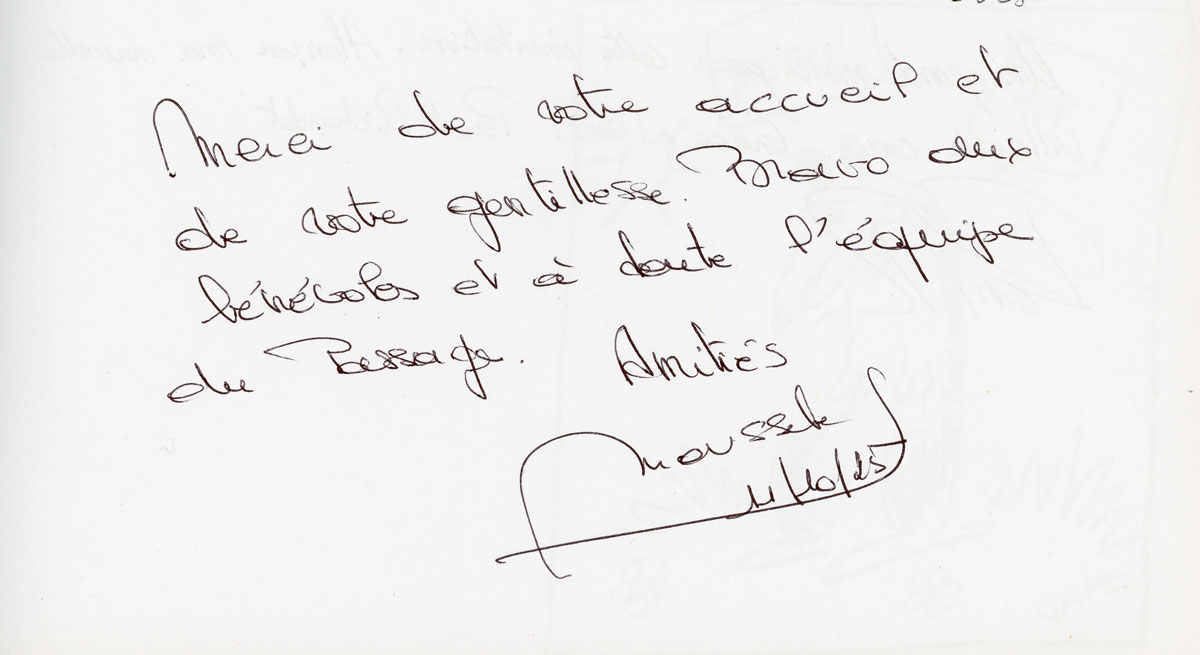 Merci de votre accueil et
de votre gentillesse. Bravo aux
bénévoles et à toute l'équipe
du Passage. Amitiés
11/10/25